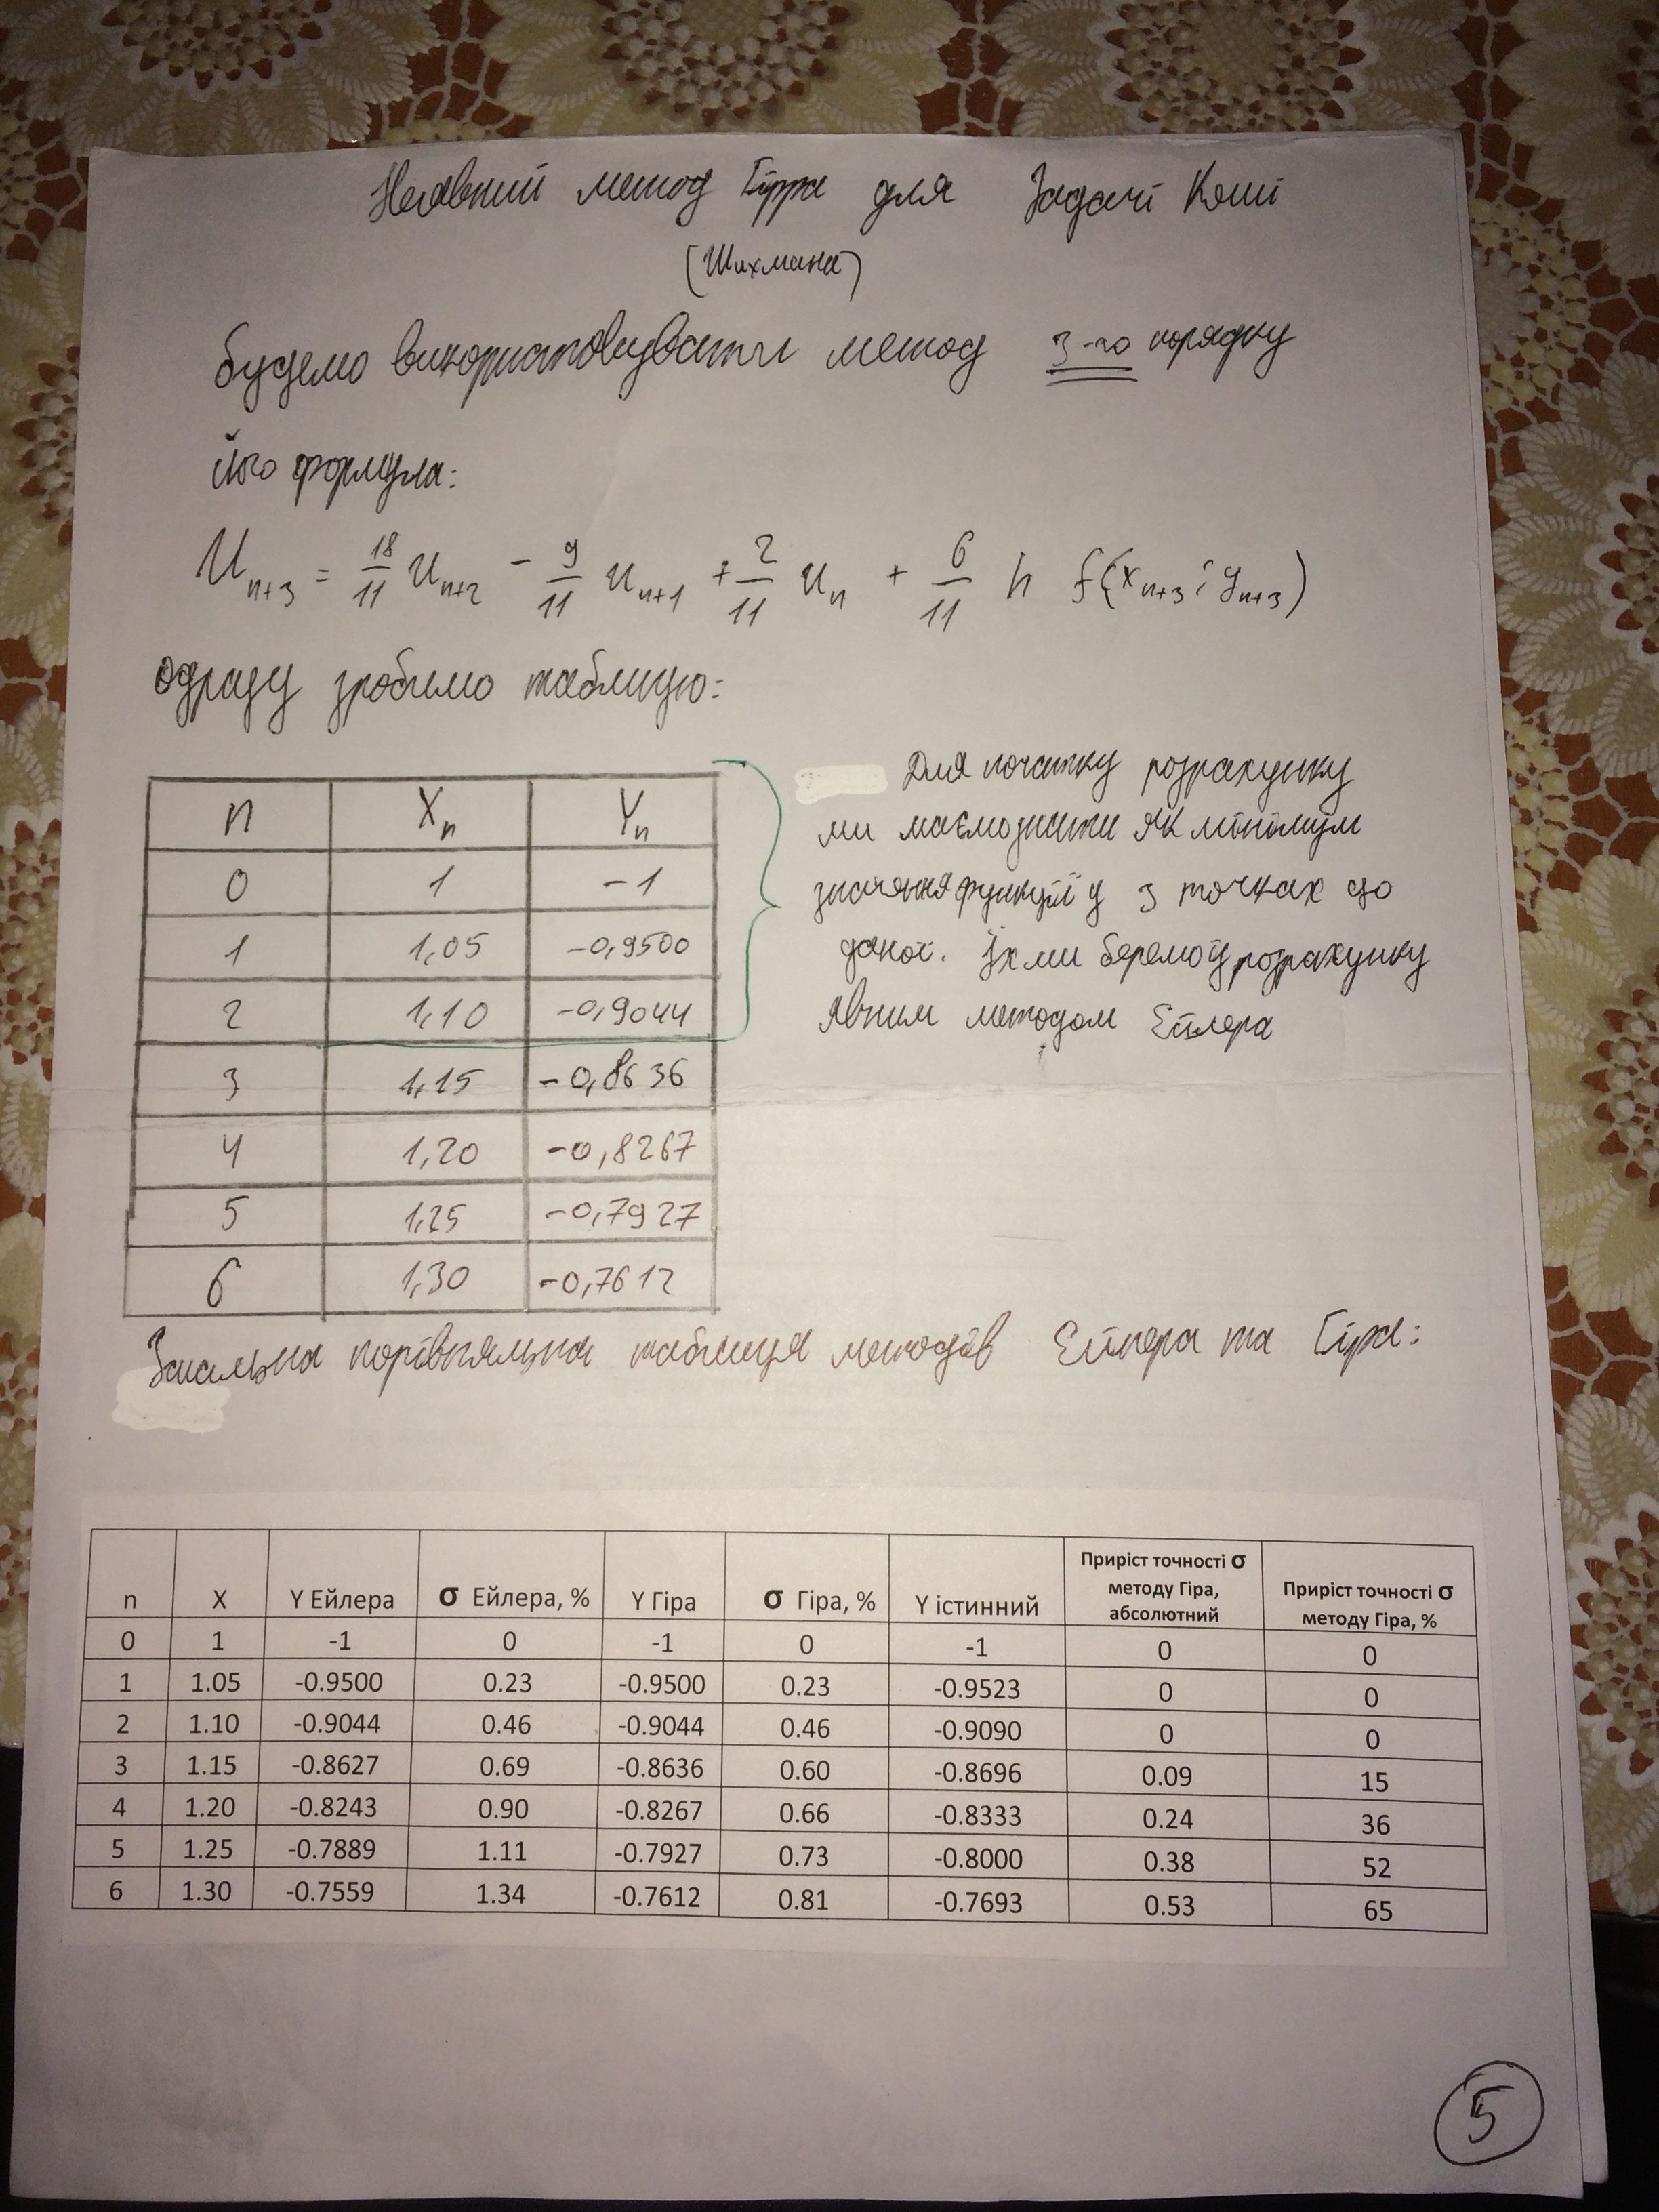 Неявний метод Гірра для Задачі Коші
(Шихмана)
будемо використовувати метод 3-го порядку
його формула:
U n+3 = 18/11 U n+2 - 9/11 U n+1 + 2/11 U n + 6/11 h f(x n+3 ; y n+3)
одразу зробимо таблицю:
n Xn Yn
0 1 -1
1 1,05 -0,9500
2 1,10 -0,9044
3 1,15 -0,8636
4 1,20 -0,8267
5 1,25 -0,7927
6 1,30 -0,7612
Для початку розрахунку
ми маємо знати як мінімум
значення функції у 3 точках до
даної. Їх ми беремо із розрахунку
явним методом Ейлера
Загальна порівняльна таблиця методів Ейлера та Гіра:
n X Y Ейлера σ Ейлера, % Y Гіра σ Гіра, % Y істинний Приріст точності σ методу Гіра, абсолютний Приріст точності σ методу Гіра, %
0 1 -1 0 -1 0 -1 0 0
1 1.05 -0.9500 0.23 -0.9500 0.23 -0.9523 0 0
2 1.10 -0.9044 0.46 -0.9044 0.46 -0.9090 0 0
3 1.15 -0.8627 0.69 -0.8636 0.60 -0.8696 0.09 15
4 1.20 -0.8243 0.90 -0.8267 0.66 -0.8333 0.24 36
5 1.25 -0.7889 1.11 -0.7927 0.73 -0.8000 0.38 52
6 1.30 -0.7559 1.34 -0.7612 0.81 -0.7693 0.53 65
5